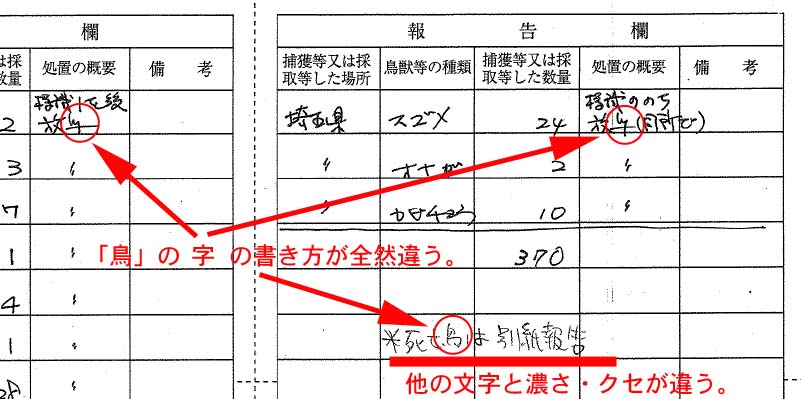 欄
は採
数量
処置の概要
備 考
2
標識して後
放鳥
3
〃
7
〃
1
〃
4
〃
1
〃
〃
報 告 欄
捕獲等又は採
取等した場所
鳥獣等の種類
捕獲等又は採
取等した数量
処置の概要
備 考
埼玉県
スズメ
24
標識ののち
放鳥(同所で)
〃
オナガ
2
〃
〃
10
〃
370
「鳥」の 字 の書き方が全然違う。
*死亡鳥は別紙報告
他の文字と濃さ・クセが違う。